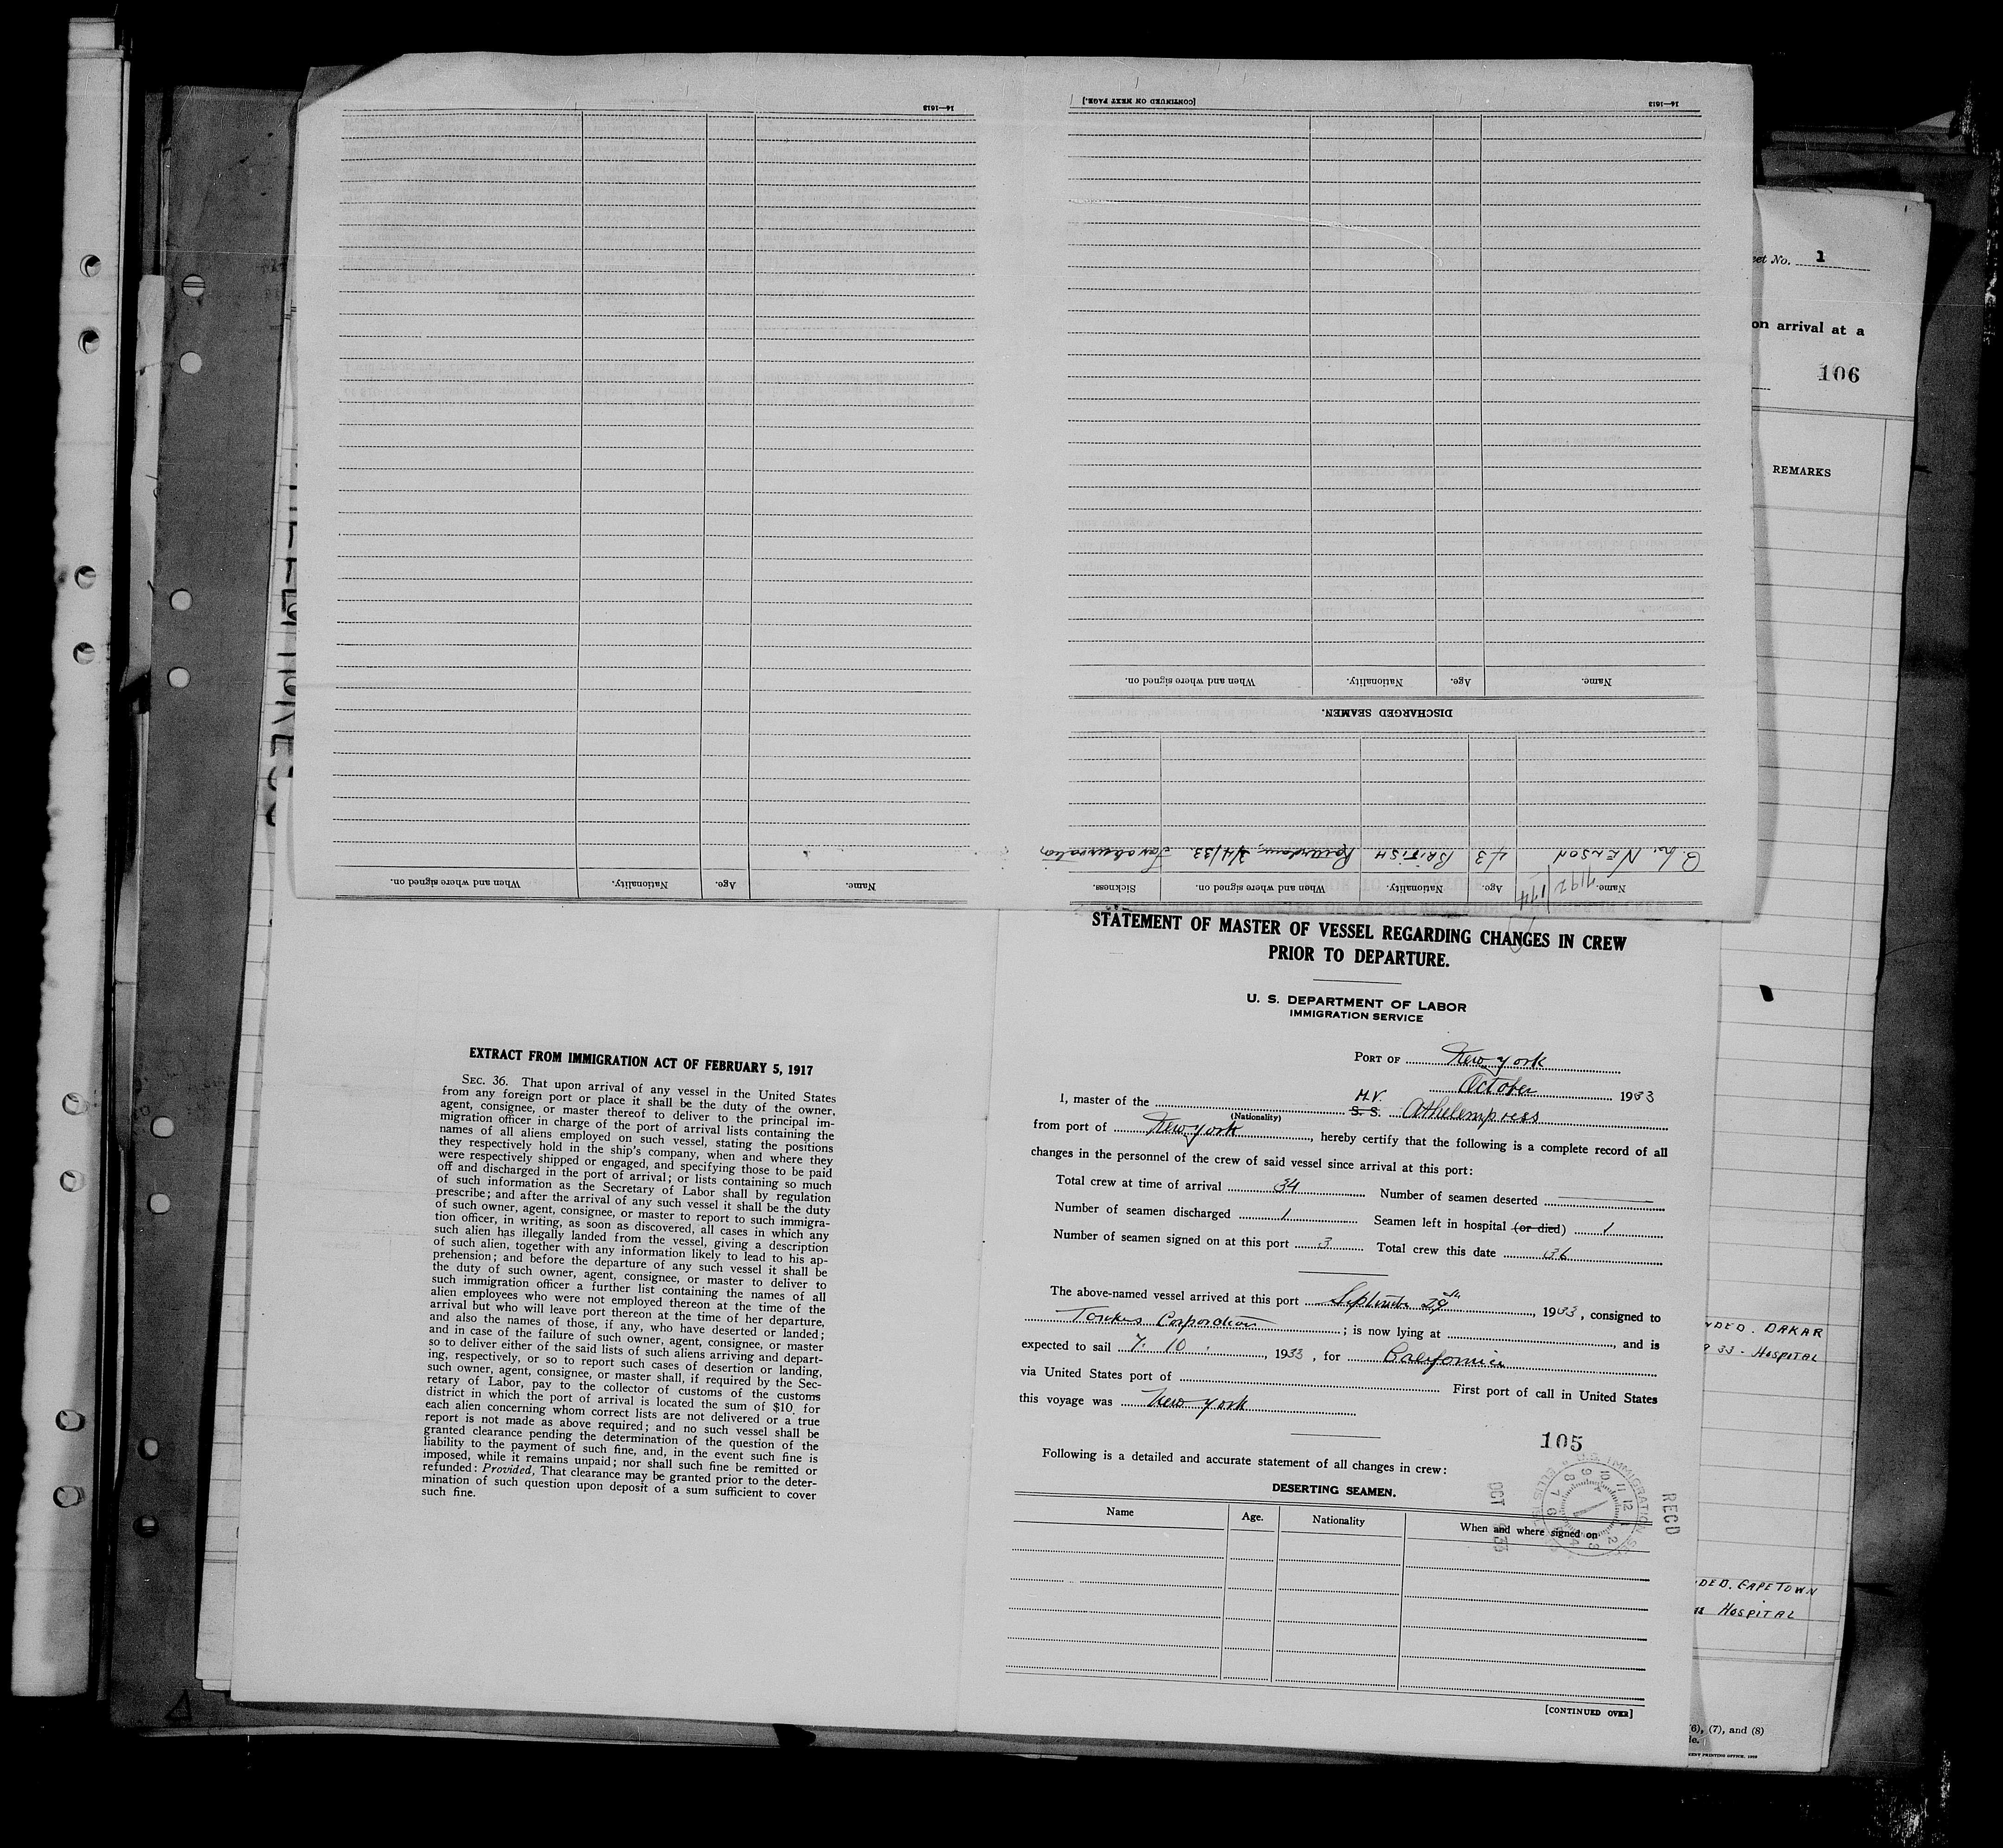 14—1613
[CONTINUED ON NEXT PAGE.]
14—1613
Name.
Age.
Nationality.
When and where signed on.
DISCHARGED SEAMEN.
Name.
Age.
Nationality.
When and where signed on.
NELSON 43 BRITISH
Name.
Age.
Nationality.
When and where signed on.
Sickness.
eet No. 1
on arrival at a
106
REMARKS
NDED. DAKAR
33 - HOSPITAL
DED. CAPE TOWN
HOSPITAL
(6), (7), and (8)
EXTRACT FROM IMMIGRATION ACT OF FEBRUARY 5, 1917
SEC. 36. That upon arrival of any vessel in the United States
from any foreign port or place it shall be the duty of the owner,
agent, consignee, or master thereof to deliver to the principal im-
migration officer in charge of the port of arrival lists containing the
names of all aliens employed on such vessel, stating the positions
they respectively hold in the ship's company, when and where they
were respectively shipped or engaged, and specifying those to be paid
off and discharged in the port of arrival; or lists containing so much
of such information as the Secretary of Labor shall by regulation
prescribe; and after the arrival of any such vessel it shall be the duty
of such owner, agent, consignee, or master to report to such immigra-
tion officer, in writing, as soon as discovered, all cases in which any
such alien has illegally landed from the vessel, giving a description
of such alien, together with any information likely to lead to his ap-
prehension; and before the departure of any such vessel it shall be
the duty of such owner, agent, consignee, or master to deliver to
such immigration officer a further list containing the names of all
alien employees who were not employed thereon at the time of the
arrival but who will leave port thereon at the time of her departure,
and also the names of those, if any, who have deserted or landed;
and in case of the failure of such owner, agent, consignee, or master
so to deliver either of the said lists of such aliens arriving and depart-
ing, respectively, or so to report such cases of desertion or landing,
such owner, agent, consignee, or master shall, if required by the Sec-
retary of Labor, pay to the collector of customs of the customs
district in which the port of arrival is located the sum of $10 for
each alien concerning whom correct lists are not delivered or a true
report is not made as above required; and no such vessel shall be
granted clearance pending the determination of the question of the
liability to the payment of such fine, and, in the event such fine is
imposed, while it remains unpaid; nor shall such fine be remitted or
refunded: Provided, That clearance may be granted prior to the deter-
mination of such question upon deposit of a sum sufficient to cover
such fine.
STATEMENT OF MASTER OF VESSEL REGARDING CHANGES IN CREW
PRIOR TO DEPARTURE.
U. S. DEPARTMENT OF LABOR
IMMIGRATION SERVICE
PORT OF New York
October 1933
I, master of the (Nationality) M.V. S. S. Athelempress
from port of New York, hereby certify that the following is a complete record of all
changes in the personnel of the crew of said vessel since arrival at this port:
Total crew at time of arrival 34 Number of seamen deserted
Number of seamen discharged 1 Seamen left in hospital (or died) 1
Number of seamen signed on at this port 3 Total crew this date 36
The above-named vessel arrived at this port September 29th, 1933, consigned to
Corporation; is now lying at , and is
expected to sail 7. 10., 1933, for California
via United States port of First port of call in United States
this voyage was New York
105
Following is a detailed and accurate statement of all changes in crew:
DESERTING SEAMEN.
Name Age. Nationality When and where signed on
RECD
OCT
[CONTINUED OVER]